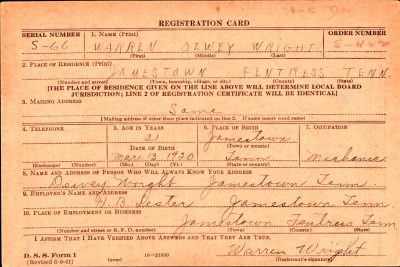 REGISTRATION CARD
SERIAL NUMBER 1. NAME (Print) ORDER NUMBER
S-66 WARREN DEWEY WRIGHT S-422
2. PLACE OF RESIDENCE (Print)
JAMESTOWN FENTRESS TENN
(Number and street) (Town, township, village, or city) (County) (State)
[THE PLACE OF RESIDENCE GIVEN ON THE LINE ABOVE WILL DETERMINE LOCAL BOARD
JURISDICTION; LINE 2 OF REGISTRATION CERTIFICATE WILL BE IDENTICAL]
3. MAILING ADDRESS
Same
[Mailing address if other than place indicated on line 2. If same insert word same]
4. TELEPHONE 5. AGE IN YEARS 6. PLACE OF BIRTH 7. OCCUPATION
21 Jamestown
DATE OF BIRTH (Town or county)
Mar. 13 1920 Tenn Mechanic
(Exchange) (Number) (Mo.) (Day) (Yr.) (State or country)
8. NAME AND ADDRESS OF PERSON WHO WILL ALWAYS KNOW YOUR ADDRESS
Dewey Wright Jamestown Tenn.
9. EMPLOYER'S NAME AND ADDRESS
H. B. Lester Jamestown Tenn
10. PLACE OF EMPLOYMENT OR BUSINESS
Jamestown Fentress Tenn
(Number and street or R. F. D. number) (Town) (County) (State)
I AFFIRM THAT I HAVE VERIFIED ABOVE ANSWERS AND THAT THEY ARE TRUE.
Warren Wright
D. S. S. Form 1 (over) 16—21630 (Registrant's signature)
(Revised 6-9-41)